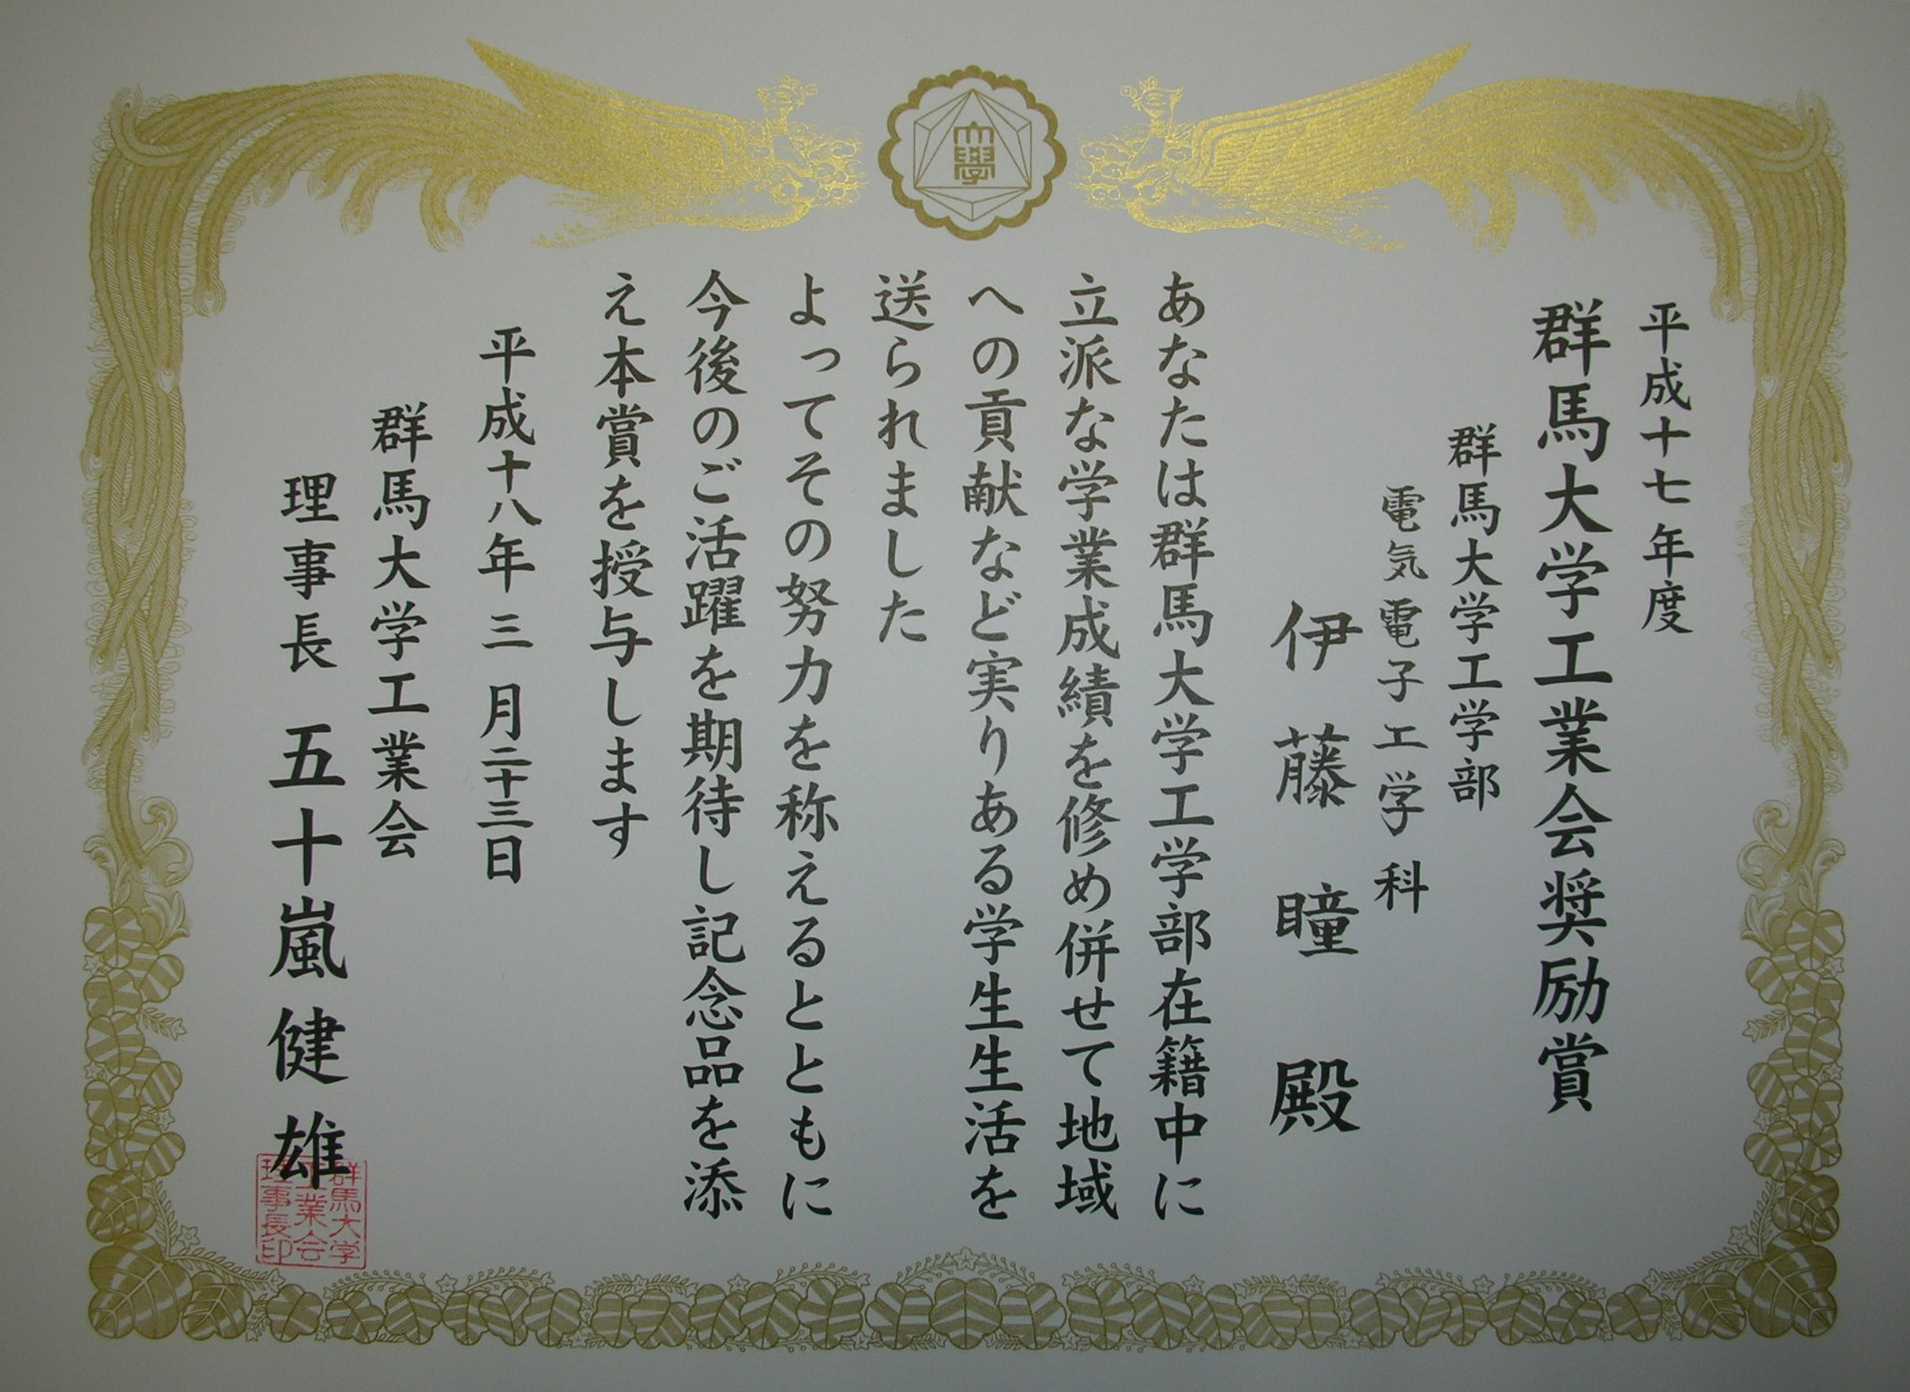 大學
平成十七年度
群馬大学工業会奨励賞
群馬大学工学部
電気電子工学科
伊藤瞳殿
あなたは群馬大学工学部在籍中に
立派な学業成績を修め併せて地域
への貢献など実りある学生生活を
送られました
よってその努力を称えるとともに
今後のご活躍を期待し記念品を添
え本賞を授与します
平成十八年三月二十三日
群馬大学工業会
理事長 五十嵐健雄
群馬大学
工業会
理事長印